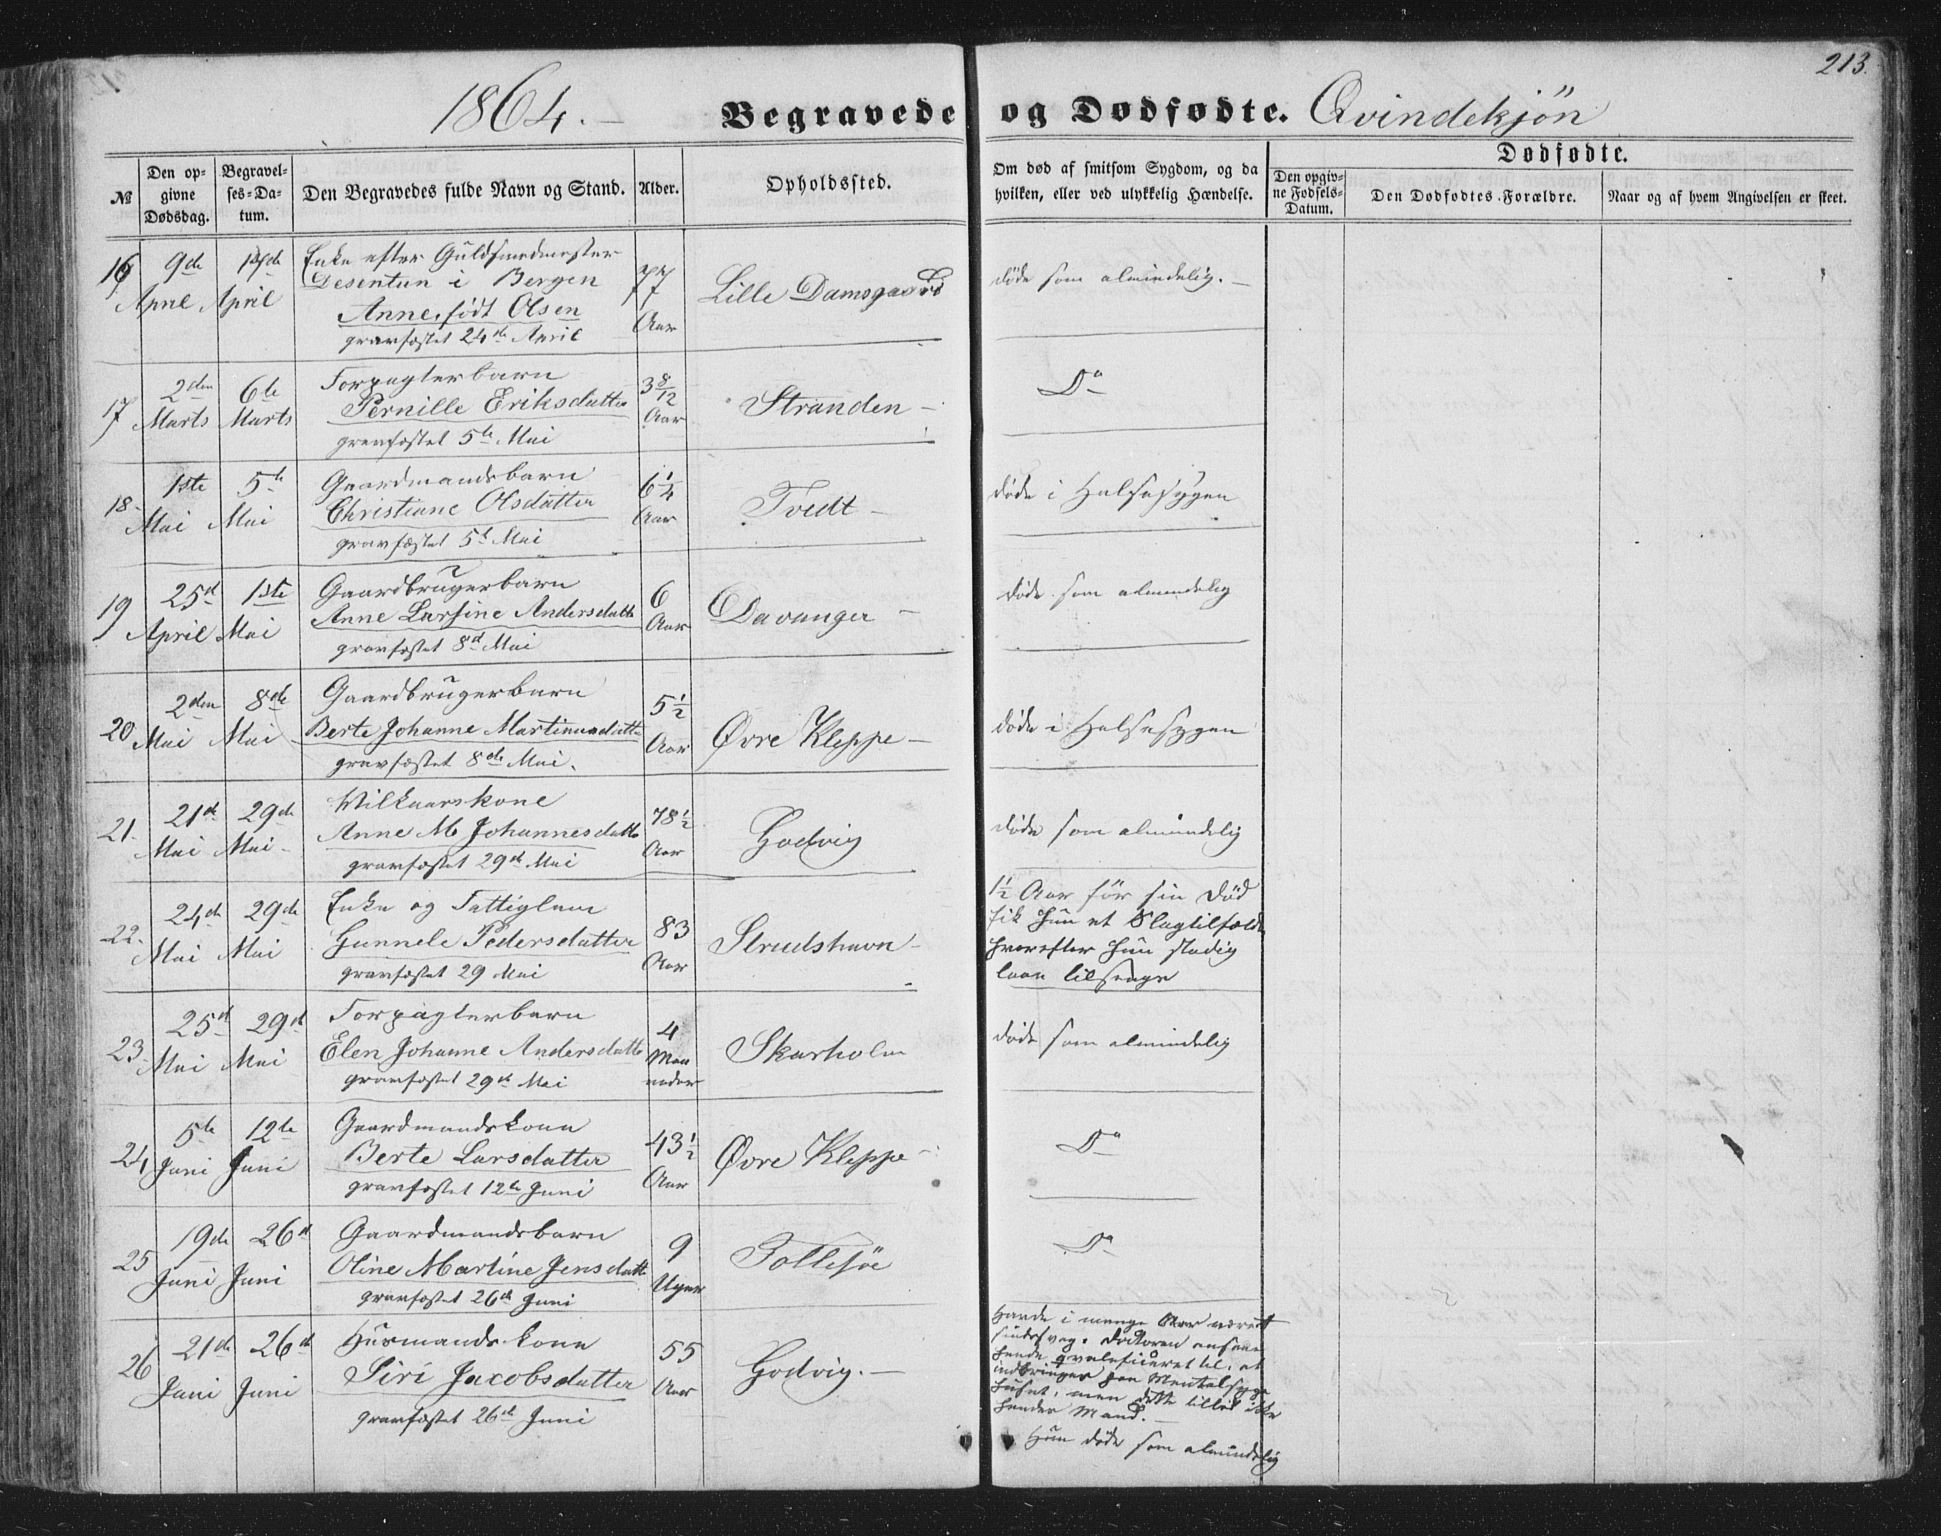 213.
1864. — Begravede og Dødfødte. Qvindekjön
№ | Den opgivne Dødsdag. | Begravelses-Datum. | Den Begravedes fulde Navn og Stand. | Alder. | Opholdssted. | Om død af smitsom Sygdom, og da hvilken, eller ved ulykkelig Hændelse. | Dødfødte. | Den opgivne Fødsels-Datum. | Den Dødfødtes Forældre. | Naar og af hvem Angivelsen er skeet.
16 | 9de April | April | Enke efter Guldsmedmester
Desentun i Bergen
Anne, født Olsen
gravfæstet 24de April | 77 Aar | Lille Damsgaard | døde som almindelig. —
17 | 2den Marts | 6te Marts | Forpagterbarn
Pernille Eriksdatter
gravfæstet 5te Mai | 3 8/12 Aar | Stranden — | Do
18. | 1ste Mai | 5te Mai | Gaardmandsbarn
Christiane Olsdatter
gravfæstet 5te Mai | 6 1/4 Aar | Tvedt — | døde i Halsesygen
19 | 25de April | 1ste Mai | Gaardbrugerbarn
Anne Larsine Andersdatter
gravfæstet 8de Mai | 6 Aar | Davanger — | døde som almindelig
20 | 2den Mai | 8de Mai | Gaardbrugerbarn
Berte Johanne Martinusdatter
gravfæstet 8de Mai. | 5 1/2 Aar | Øvre Kleppe — | døde i Halsesygen
21. | 21de Mai | 29de Mai | Vilkaarskone
Anne M Johannesdatter
gravfæstet 29de Mai | 78 1/2 Aar | Hodvig | døde som almindelig
22. | 24de Mai | 29de Mai | Enke og Fattiglem
Gunnele Pedersdatter
gravfæstet 29 Mai | 83 Aar | Strudshavn — | 1 1/2 Aar før sin Død
fik hun et Slagtilfælde
hvorefter hun stadig
laae tilsengs
23. | 25de Mai | 29de Mai | Forpagterbarn
Elen Johanne Andersdatter
gravfæstet 29de Mai | 4 Maaneder | Skarholm | døde som almindelig
24 | 5te Juni | 12te Juni | Gaardmandskone
Berte Larsdatter
gravfæstet 12te Juni | 43 1/2 Aar | Øvre Kleppe — | Do
25 | 19de Juni | 26de Juni | Gaardmandsbarn
Oline Martine Jensdatter
gravfæstet 26de Juni | 9 Uger | Follesøe | Do
26 | 21de Juni | 26de Juni | Huusmandskone
Siri Jacobsdatter
gravfæstet 26de Juni | 55 Aar | Hodvig. — | Havde i mange Aar været
sindssvag. Doktoren ansaae
hende qvalificeret til, at
indbringes paa Mentalsyge
huset, men dette tillod ikke
hendes Mand. —
Hun døde som almindelig